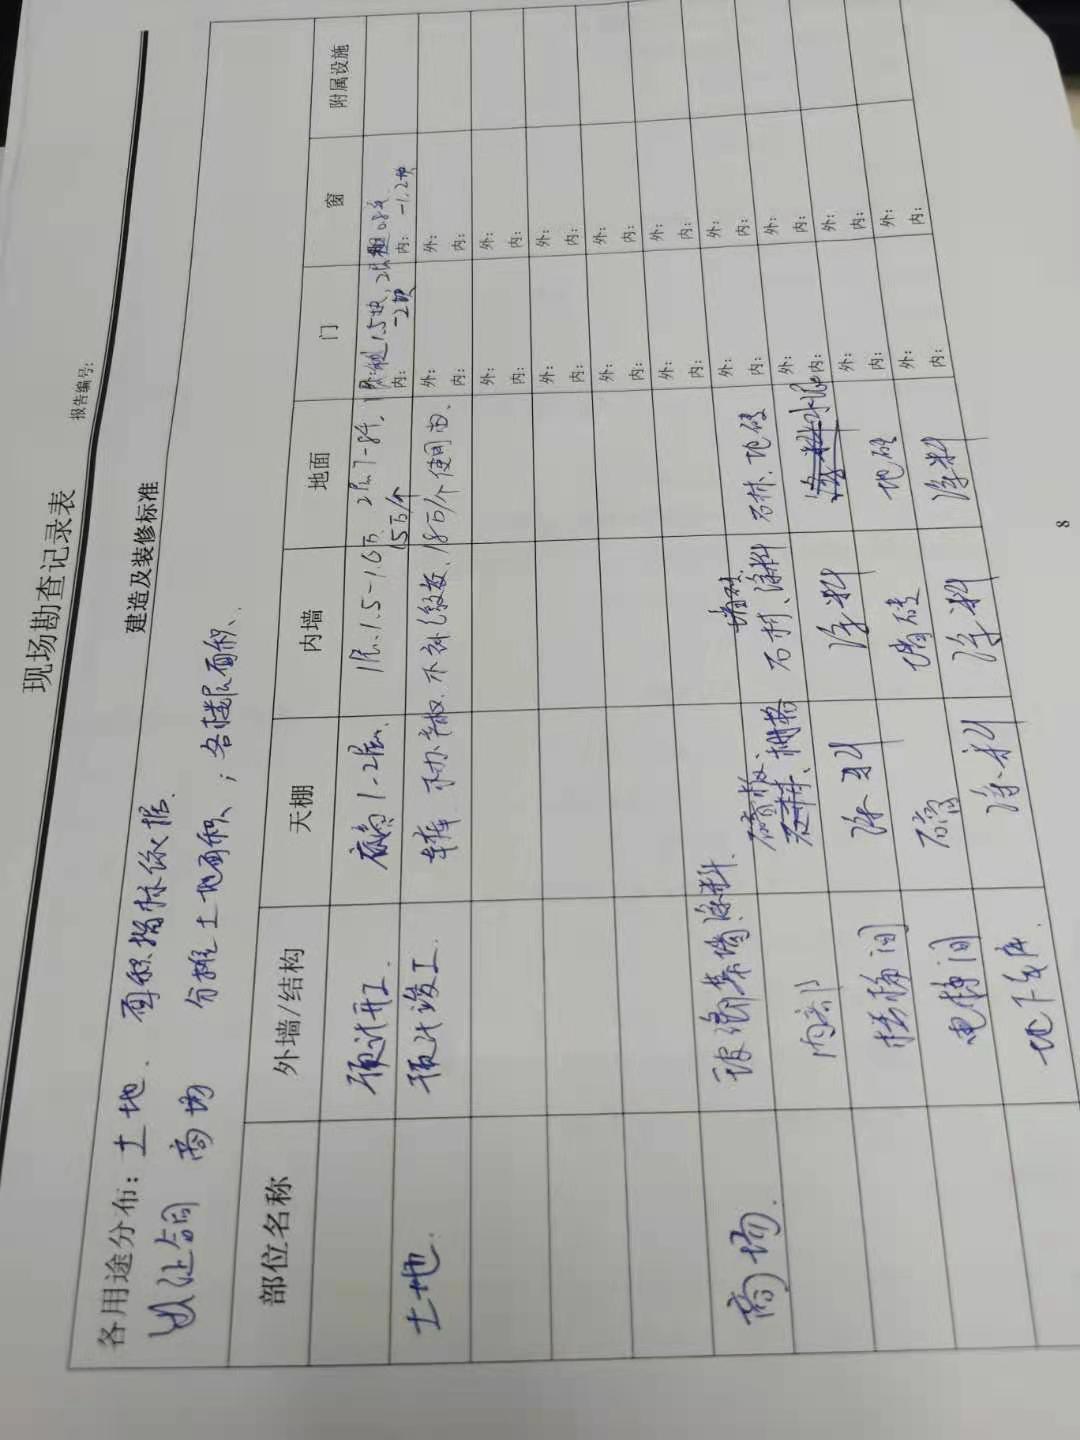 现场勘查记录表
报告编号:
建造及装修标准
各用途分布: 土地. 面积指标依据.
出让合同 商场 分摊土地面积、; 各楼层面积、
部位名称 外墙/结构 天棚 内墙 地面 门 窗 附属设施
预计开工. 底商1-2层、 1层、1.5-1.6万、2层7-8千, 15万/个 外: 内: -2块 内: -1.2块
土地. 预计竣工. 车库 不办产权. 18万/个使用由、 外: 内: 外: 内:
外: 内: 外: 内:
外: 内: 外: 内:
外: 内: 外: 内:
外: 内: 外: 内:
商场. 玻璃幕墙涂料. 外: 内: 外: 内:
内部 石膏板、格栅 墙砖. 石材、涂料 石材. 地砖 外: 内: 外: 内:
楼梯间 涂料 涂料 水泥 外: 内: 外: 内:
电梯间 石膏 墙砖 地砖 外: 内: 外: 内:
地下车库. 涂料 涂料 涂料
8